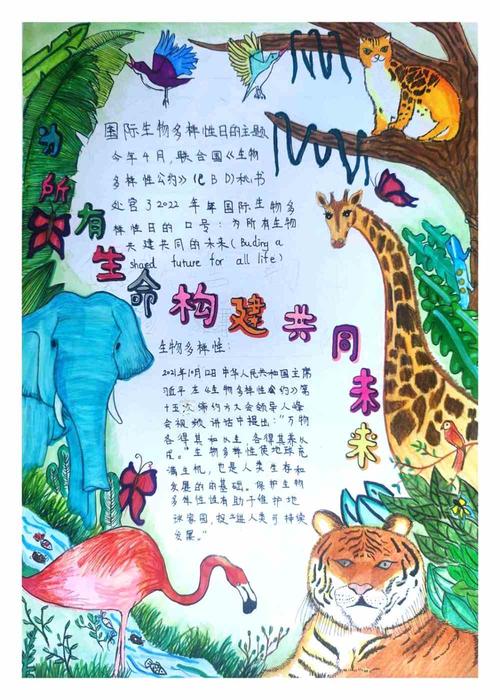 为所有生命构建共同未来
国际生物多样性日的主题
今年4月，联合国《生物
多样性公约》(CBD)秘书
处官了2022年年国际生物多
样性日的口号：为所有生物
共建共同的未来(Buding a
shaed future for all life)
生物多样性：
2021年10月12日中华人民共和国主席
习近平在《生物多样性公约》第
十五次缔约方大会领导人峰
会视频讲话中提出："万物
各得其和以生，各得其养以
成。"生物多样性使地球充
满生机，也是人类生存和
发展的的基础。保护生物
多样性性有助于维护地
球家园，投工进人类可持续
发展。"